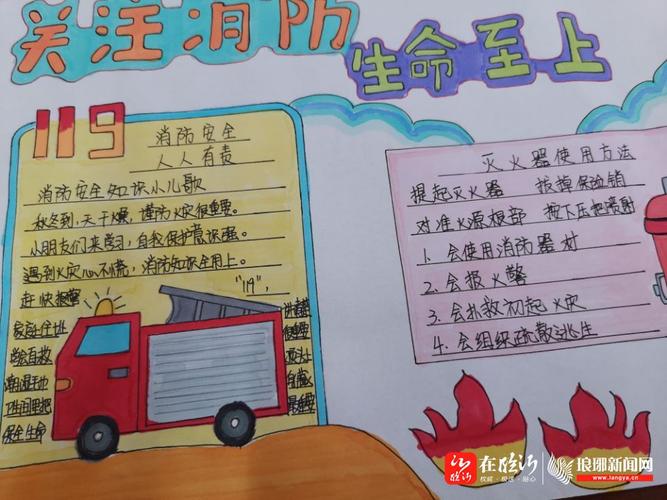 关注消防
生命至上
119
消防安全
人人有责
消防安全知识小儿歌
秋冬到，天干燥，谨防火灾很重要。
小朋友们来学习，自我保护意识强。
遇到火灾心不慌，消防知识全用上。
赶快报警
"119"，
学会自救
卫生间里把
保全生命
灭火器使用方法
提起灭火器 拔掉保险销
对准火源根部 按下压把喷射
1.会使用消防器材
2.会报火警
3.会扑救初起火灾
4.会组织疏散逃生
在临沂
权威·极速·贴心
琅琊新闻网
www.langya.cn